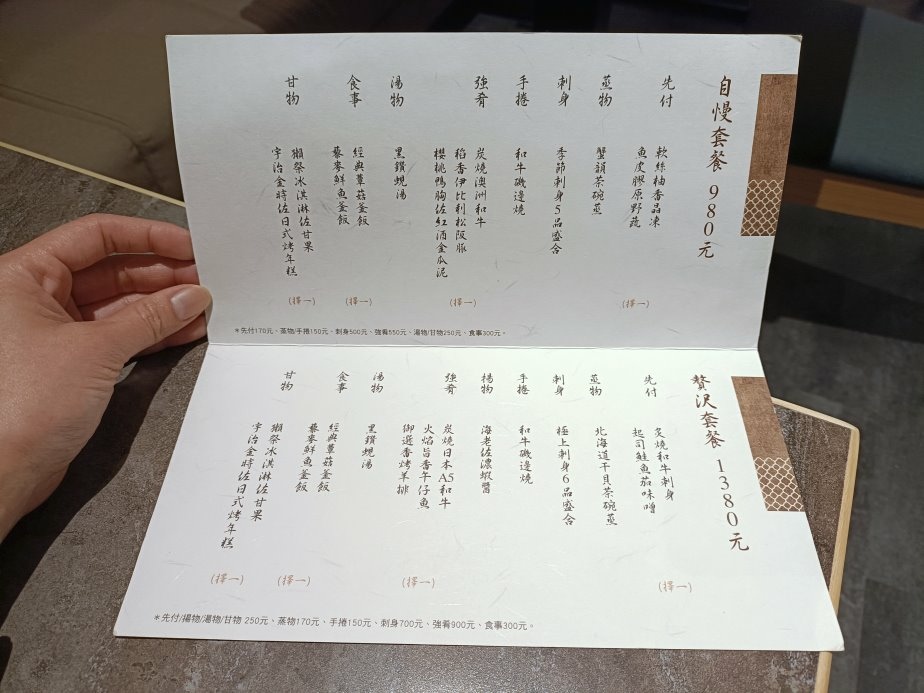 自慢套餐 980元
先付
軟絲柚香晶凍
魚皮膠原野蔬
(擇一)
蒸物
蟹韻茶碗蒸
刺身
季節刺身5品盛合
手捲
和牛磯邊燒
強肴
炭燒澳洲和牛
稻香伊比利松阪豚
櫻桃鴨胸佐紅酒金瓜泥
(擇一)
湯物
黑鑽蜆湯
食事
經典蕈菇釜飯
藜麥鮮魚釜飯
(擇一)
甘物
獺祭冰淇淋佐甘果
宇治金時佐日式烤年糕
(擇一)
*先付170元、蒸物/手捲150元、刺身500元、強肴550元、湯物/甘物250元、食事300元。
贅沢套餐 1380元
先付
炙燒和牛刺身
起司鮭魚茄味噌
(擇一)
蒸物
北海道干貝茶碗蒸
刺身
極上刺身6品盛合
手捲
和牛磯邊燒
揚物
海老佐濃蝦醬
強肴
炭燒日本A5和牛
火焰旨香午仔魚
御選香烤羊排
(擇一)
湯物
黑鑽蜆湯
食事
經典蕈菇釜飯
藜麥鮮魚釜飯
(擇一)
甘物
獺祭冰淇淋佐甘果
宇治金時佐日式烤年糕
(擇一)
*先付/揚物/湯物/甘物 250元、蒸物170元、手捲150元、刺身700元、強肴900元、食事300元。